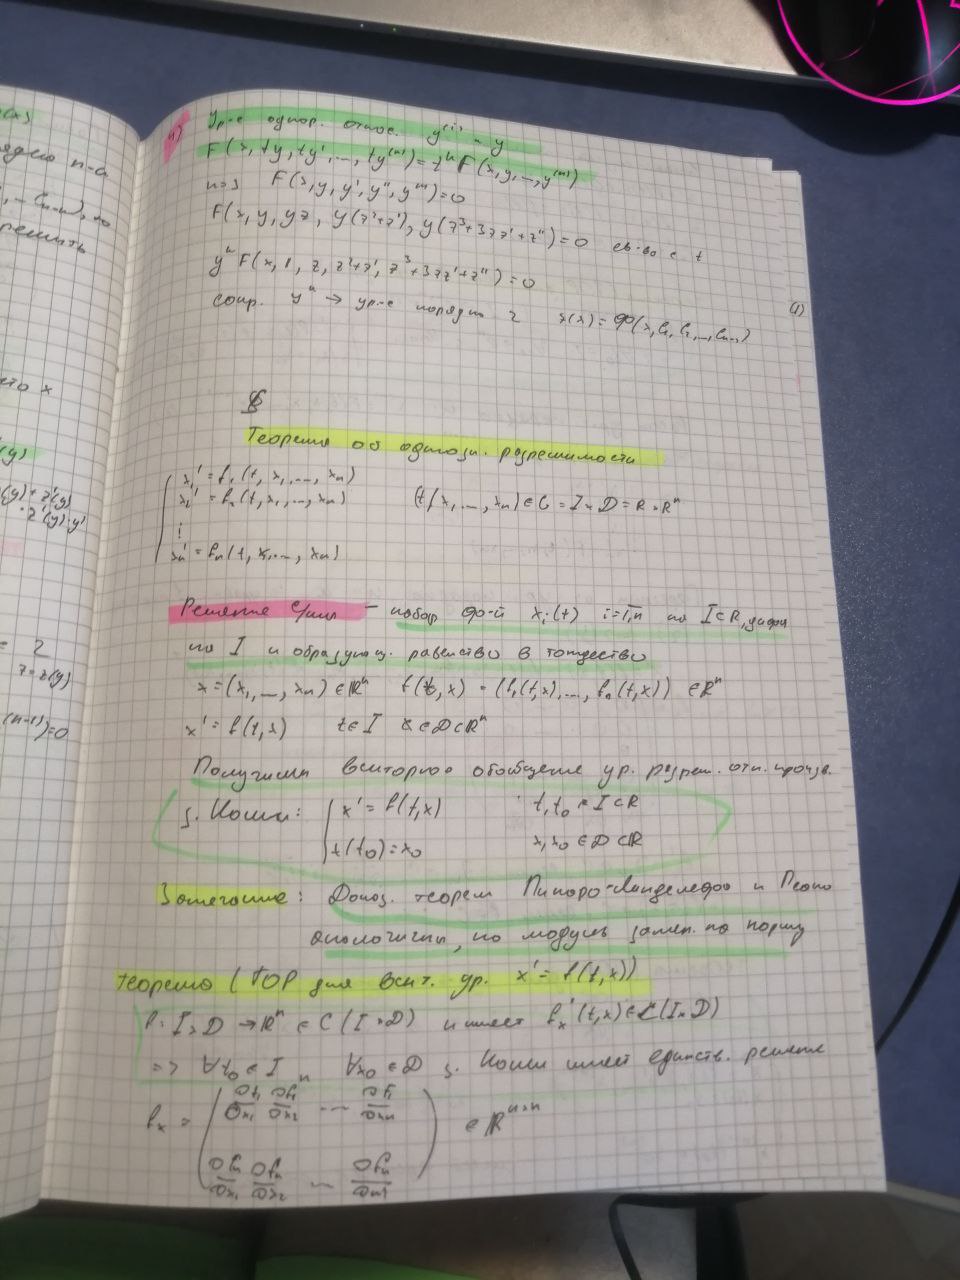 4) Ур-е однор. относ. y⁽ⁱ⁾ и y
F(x, ty, ty', ..., ty⁽ⁿ⁾) = tᵏF(x, y, ..., y⁽ⁿ⁾)
n=3 F(x, y, y', y'', y''') = 0
F(x, y, yz, y(z²+z'), y(z³+3zz'+z'')) = 0 св-во с t
yᵏF(x, 1, z, z²+z', z³+3zz'+z'') = 0
сокр. yᵏ → ур-е порядка 2 z(x) = φ(x, c₁, c₂, ..., cₙ₋₁) (1)
§
Теорема об однозн. разрешимости
x₁' = f₁(t, x₁, ..., xₙ)
x₂' = f₂(t, x₁, ..., xₙ) (t, x₁, ..., xₙ) ∈ G = I × D = R × Rⁿ
⋮
xₙ' = fₙ(t, x₁, ..., xₙ)
Решение с/мы – набор ф-й xᵢ(t) i=1,n на I⊂R,
на I и образующ. равенство в тождество
x = (x₁, ..., xₙ) ∈ Rⁿ f(t, x) = (f₁(t,x), ..., fₙ(t,x)) ∈ Rⁿ
x' = f(t,x) t∈I x∈D⊂Rⁿ
Получили векторное обобщение ур. разреш. отн. произв.
з. Коши: { x' = f(t,x) t, t₀ ∈ I⊂R
x(t₀) = x₀ x, x₀ ∈ D⊂R
Замечание: Доказ. теорем Пикаро-Линделефа и Пеано
аналогичны, но модуль замен. на норму
Теорема (ТОР для вект. ур. x' = f(t,x))
f: I×D → Rⁿ ∈ C(I×D) и имеет fₓ'(t,x) ∈ C(I×D)
=> ∀t₀∈I и ∀x₀∈D з. Коши имеет единств. решение
fₓ = ( ∂f₁/∂x₁ ∂f₁/∂x₂ ... ∂f₁/∂xₙ ) ∈ Rⁿˣⁿ
∂fₙ/∂x₁ ∂fₙ/∂x₂ ... ∂fₙ/∂xₙ